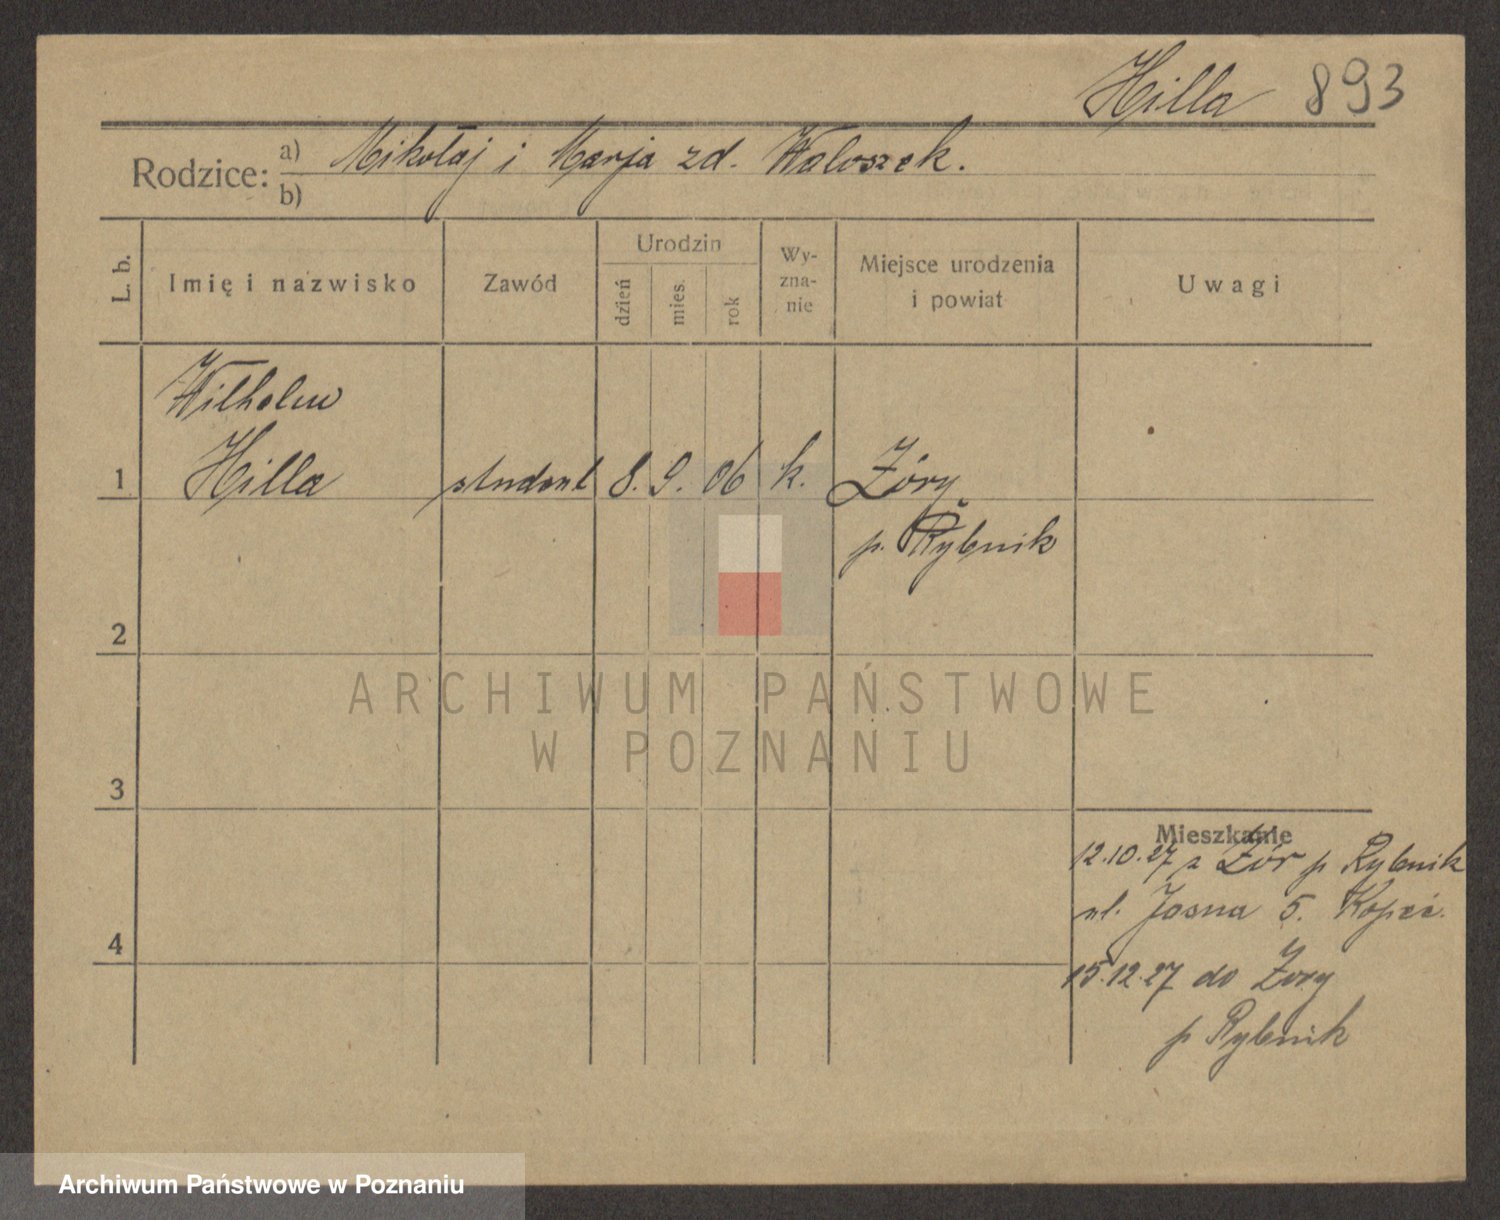 Hilla 893
Rodzice: a) Mikołaj i Marja zd. Waloszek.
b)
L. b. Imię i nazwisko Zawód Urodzin dzień mies. rok Wy-zna-nie Miejsce urodzenia i powiat Uwagi
Wilhelm
1 Hilla student 8. 9. 06 k. Żóry
p. Rybnik
2
ARCHIWUM PAŃSTWOWE
W POZNANIU
3
Mieszkanie
12.10.27 z Żór p Rybnik
ul. Jasna 5. Kopeć.
4
15.12.27 do Żory
p Rybnik
Archiwum Państwowe w Poznaniu